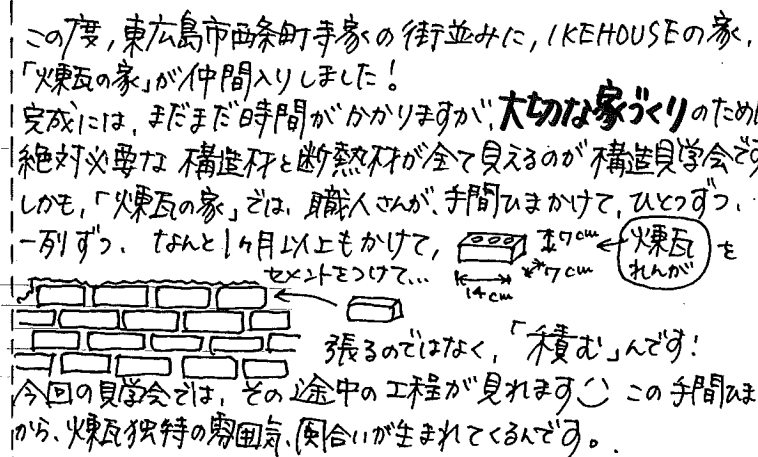 この度、東広島市西条町寺家の街並みに、IKEHOUSEの家、
「煉瓦の家」が仲間入りしました！
完成には、まだまだ時間がかかりますが、大切な家づくりのため
絶対必要な構造材と断熱材が全て見えるのが構造見学会です
しかも、「煉瓦の家」では、職人さんが、手間ひまかけて、ひとつずつ、
一列ずつ、なんと1ヶ月以上もかけて、
7cm
7cm
14cm
煉瓦
れんが
を
セメントをつけて…
張るのではなく、「積む」んです！
今回の見学会では、その途中の工程が見れます この手間ひま
から、煉瓦独特の雰囲気、風合いが生まれてくるんです。